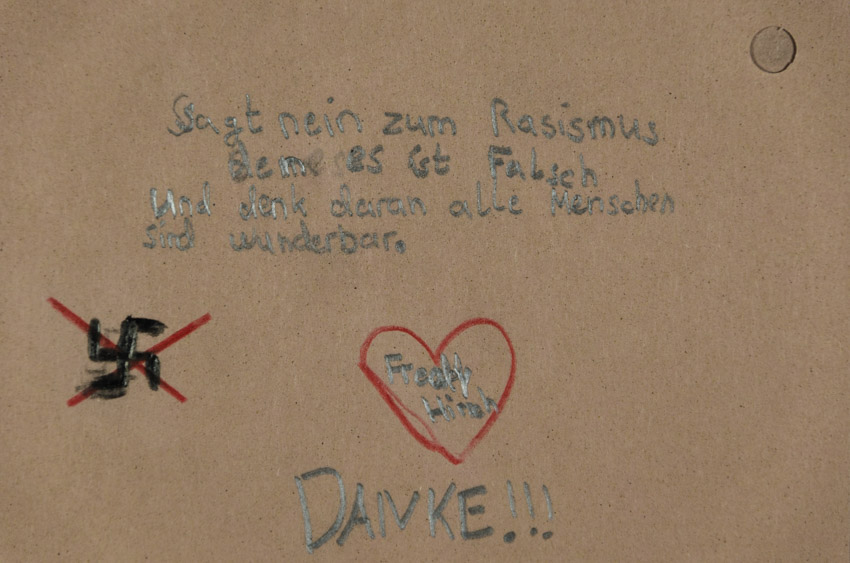 Sagt nein zum Rasismus
es ist Falsch
Und denk daran alle Menschen
sind wunderbar.
Fredy
Hirsch
DANKE!!!